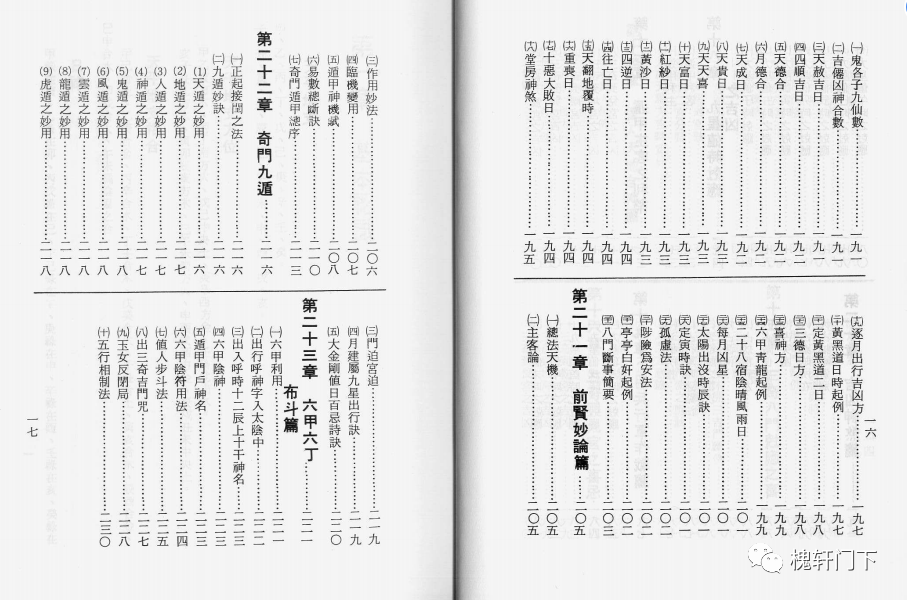 ㈠鬼各子九仙數……一九一
㈡吉僊凶神合數……一九一
㈢天赦吉日……一九一
㈣四順吉日……一九二
㈤天德合……一九二
㈥月德合……一九二
㈦天成日……一九二
㈧天貴日……一九三
㈨天天喜……一九三
㈩天富日……一九三
紅紗日……一九三
黃沙日……一九三
四逆日……一九四
往亡日……一九四
天翻地覆時……一九四
重喪日……一九四
十惡大敗日……一九四
堂房神煞……一九五
逐月出行吉凶方……一九七
黃黑道日時起例……一九七
定黃黑道二日……一九八
三德日方……一九八
喜神方……一九九
六甲青龍起例……一九九
二十八宿陰晴風雨日……二〇一
每月凶星……二〇一
太陽出沒時辰訣……二〇一
天定寅時訣……二〇一
孤虛法……二〇二
陟險爲安法……二〇二
亭亭白奸起例……二〇二
八門斷事簡要……二〇三
第二十一章 前賢妙論篇……二〇五
㈠總法天機……二〇五
㈡主客論……二〇五
一六
㈢作用妙法……二〇六
㈣臨機變用……二〇七
㈤遁甲神機賦……二〇八
㈥易數總斷訣……二一〇
㈦奇門遁甲總序……二一三
第二十二章 奇門九遁……二一六
㈠正起接閏之法……二一六
㈡九遁妙訣……二一六
⑴天遁之妙用……二一六
⑵地遁之妙用……二一七
⑶人遁之妙用……二一七
⑷神遁之妙用……二一七
⑸鬼遁之妙用……二一八
⑹風遁之妙用……二一八
⑺雲遁之妙用……二一八
⑻龍遁之妙用……二一八
⑼虎遁之妙用……二一八
㈢門迫宮迫……二一九
㈣月建屬九星出行訣……二一九
㈤大金剛值日百忌詩訣……二二〇
第二十三章 六甲六丁布斗篇……二二一
㈠六甲利用……二二一
㈡出行呼神字入太陰中……二二二
㈢出入呼時十二辰上十干神名……二二三
㈣六甲陰神……二二三
㈤遁甲門戶神名……二二三
㈥六甲陰符用法……二二四
㈦值人步斗法……二二五
㈧出三奇吉門咒……二二七
㈨玉女反閉局……二二八
㈩五行相制法……二三〇
一七
槐轩门下